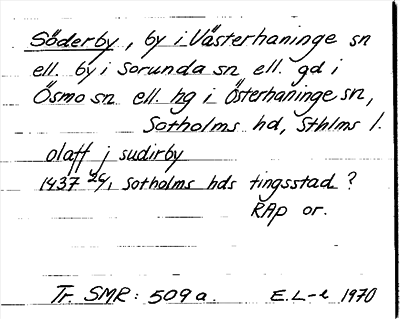 Söderby, by i Västerhaninge sn
ell. by i Sorunda sn ell. gd i
Ösmo sn ell. hg i Österhaninge sn,
Sotholms hd, Sthlms l.
olaff j sudirby
1437 24/1 Sotholms hds tingsstad?
RAp or.
Tr. SMR: 509 a. E.L-e 1970